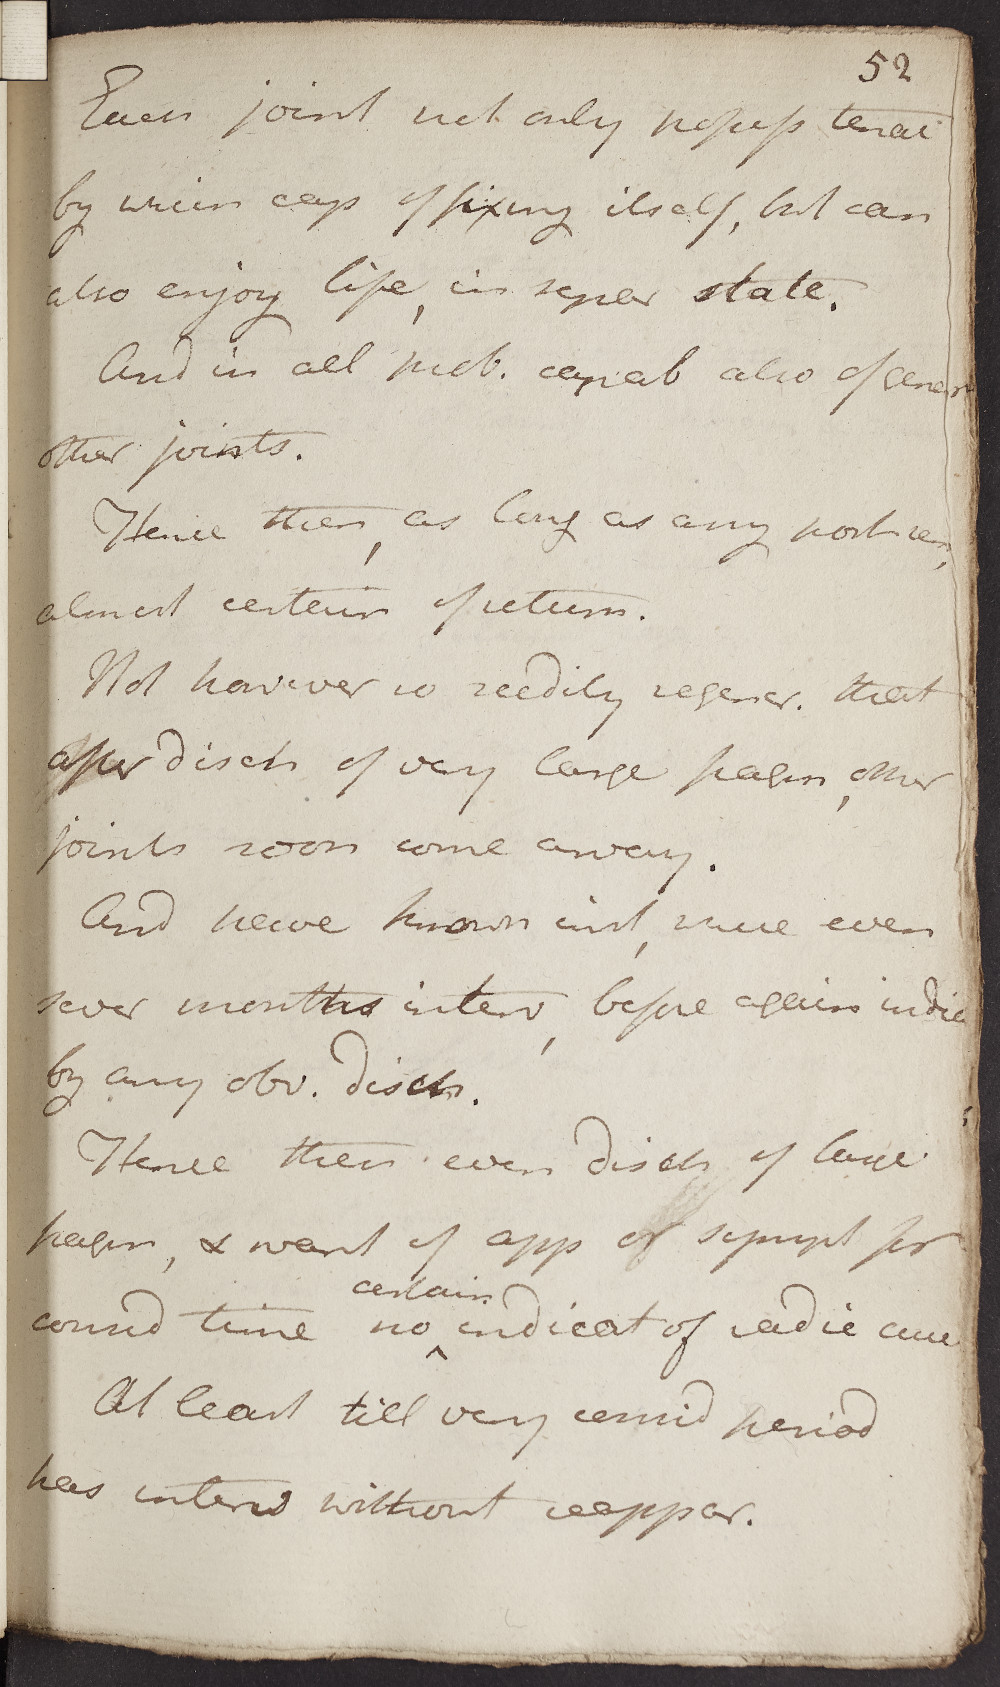 52
Each joint not only possess tenac
by which cap of fixing itself, but can
also enjoy life, in separ state.
And in all prob. capab also of gener
other joints.
Hence then, as long as any port rem,
almost certain of return.
Not however so readily regener. that
after disch of very large fragm, other
joints soon come away.
And have known inst, where even
sever months interv, before again indic
by any obv. disch.
Hence then even disch of large
fragm, & want of app of sympt for
consid time no certain indicat of radic cure
At least till very consid period
has interv without reappear.